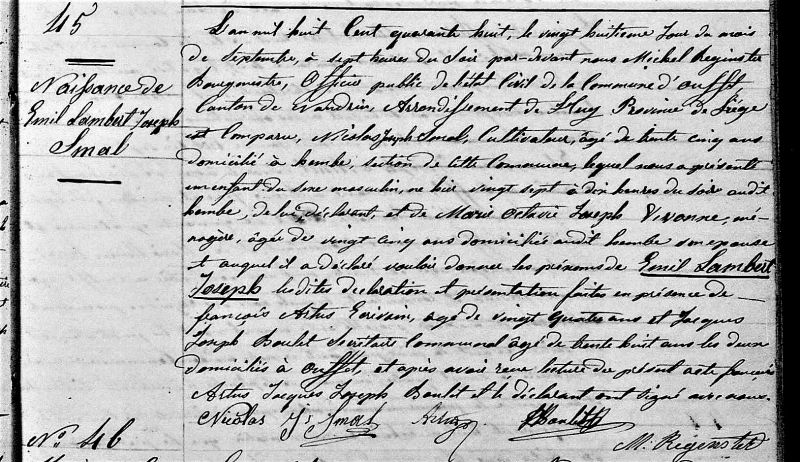 45
Naissance de
Emil Lambert Joseph
Smal
L'an mil huit Cent quarante huit, le vingt huitieme Jour du mois
de Septembre, à sept heures du Soir par-devant nous Michel Reginster
Bourgmestre, Officier public de l'état Civil de la Commune d'ouffet,
Canton de Nandrin, Arrondissement de Huy Province de Liége
est Comparu, Nicolas Joseph Smal, Cultivateur, âgé de trente cinq ans
domicilié à hembe, section de cette Commune, lequel nous a présenté
un enfant du sexe masculin, né hier vingt sept à dix heures du soir audit
hembe, de lui déclarant, et de Marie Octavie Joseph Vivonne, mé-
nagère, âgée de vingt cinq ans domiciliée audit hembe son epouse
et auquel il a déclaré vouloir donner les prénoms de Emil Lambert
Joseph lesdites declaration et présentation faites en présence de
françois Artus Ecrivain, âgé de vingt quatre ans et Jacques
Joseph Boulet Secretaire Communal âgé de trente huit ans les deux
domiciliés à ouffet, et après avoir reçu lecture du présent acte françois
Artus Jacques Joseph Boulet et le déclarant ont signé avec nous.
Nicolas J. Smal Artus JJBoulet
M. Reginster
N° 46